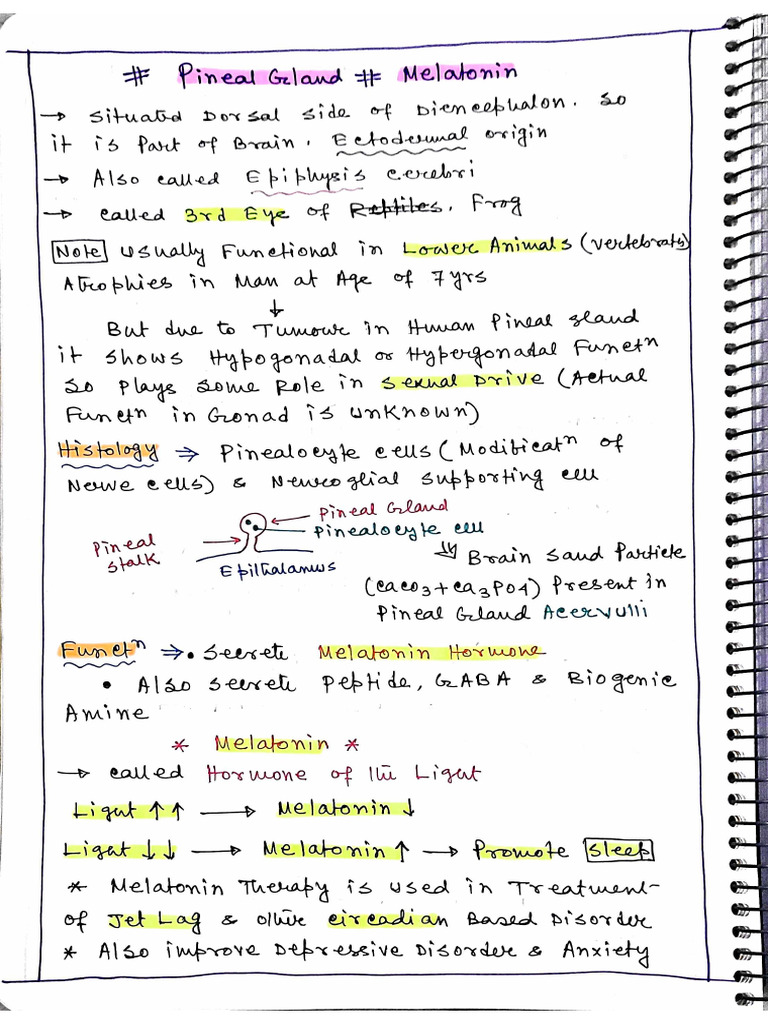 # Pineal Gland # Melatonin
→ Situated Dorsal side of Diencephalon. So
it is Part of Brain, Ectodermal origin
→ Also called Epiphysis cerebri
→ called 3rd Eye of Reptiles. Frog
Note Usually Functional in Lower Animals (vertebrats)
Atrophies in Man at Age of 7 yrs
↓
But due to Tumour in Human Pineal gland
it shows Hypogonadal or Hypergonadal Functn
so plays some Role in Sexual Drive (Actual
Functn in Gonad is unknown)
Histology ⇒ Pinealocyte cells (Modificatn of
Nerve cells) & Neuroglial supporting cell
Pineal Gland
Pinealocyte cell
Pineal
Stalk
Epithalamus
Brain sand Particle
(CaCO3 + Ca3PO4) Present in
Pineal Gland Acervulli
Functn ⇒ • Secrete Melatonin Hormone
• Also secrete Peptide, GABA & Biogenic
Amine
* Melatonin *
→ called Hormone of the Light
Light ↑↑ → Melatonin ↓
Light ↓↓ → Melatonin ↑ → Promote Sleep
* Melatonin Therapy is used in Treatment
of Jet Lag & other circadian Based Disorder
* Also improve Depressive Disorder & Anxiety